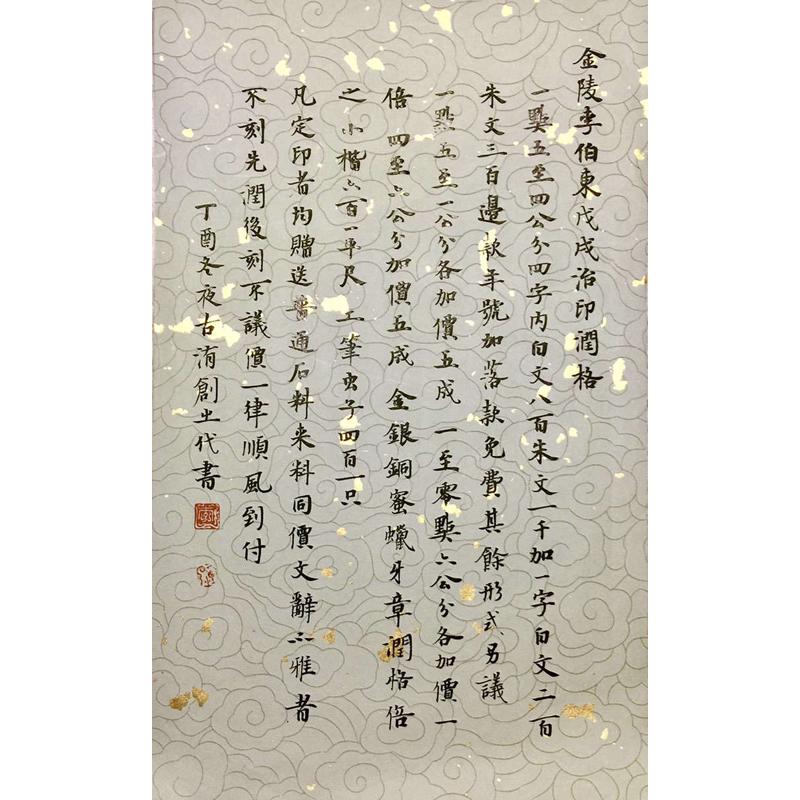 金陵李伯東戊戌治印潤格
一點五至四公分四字内白文八百朱文一千加一字白文二百
朱文三百邊款年號加落款免費其餘形式另議
一點五至一公分各加價五成 一至零點六公分各加價一
倍 四至六公分加價五成 金銀銅蜜蠟牙章潤格倍
之 小楷六百一平尺 工筆虫子四百一只
凡定印者均贈送普通石料来料同價文辭不雅者
不刻先潤後刻不議價一律順風到付
丁酉冬夜古洧創之代書